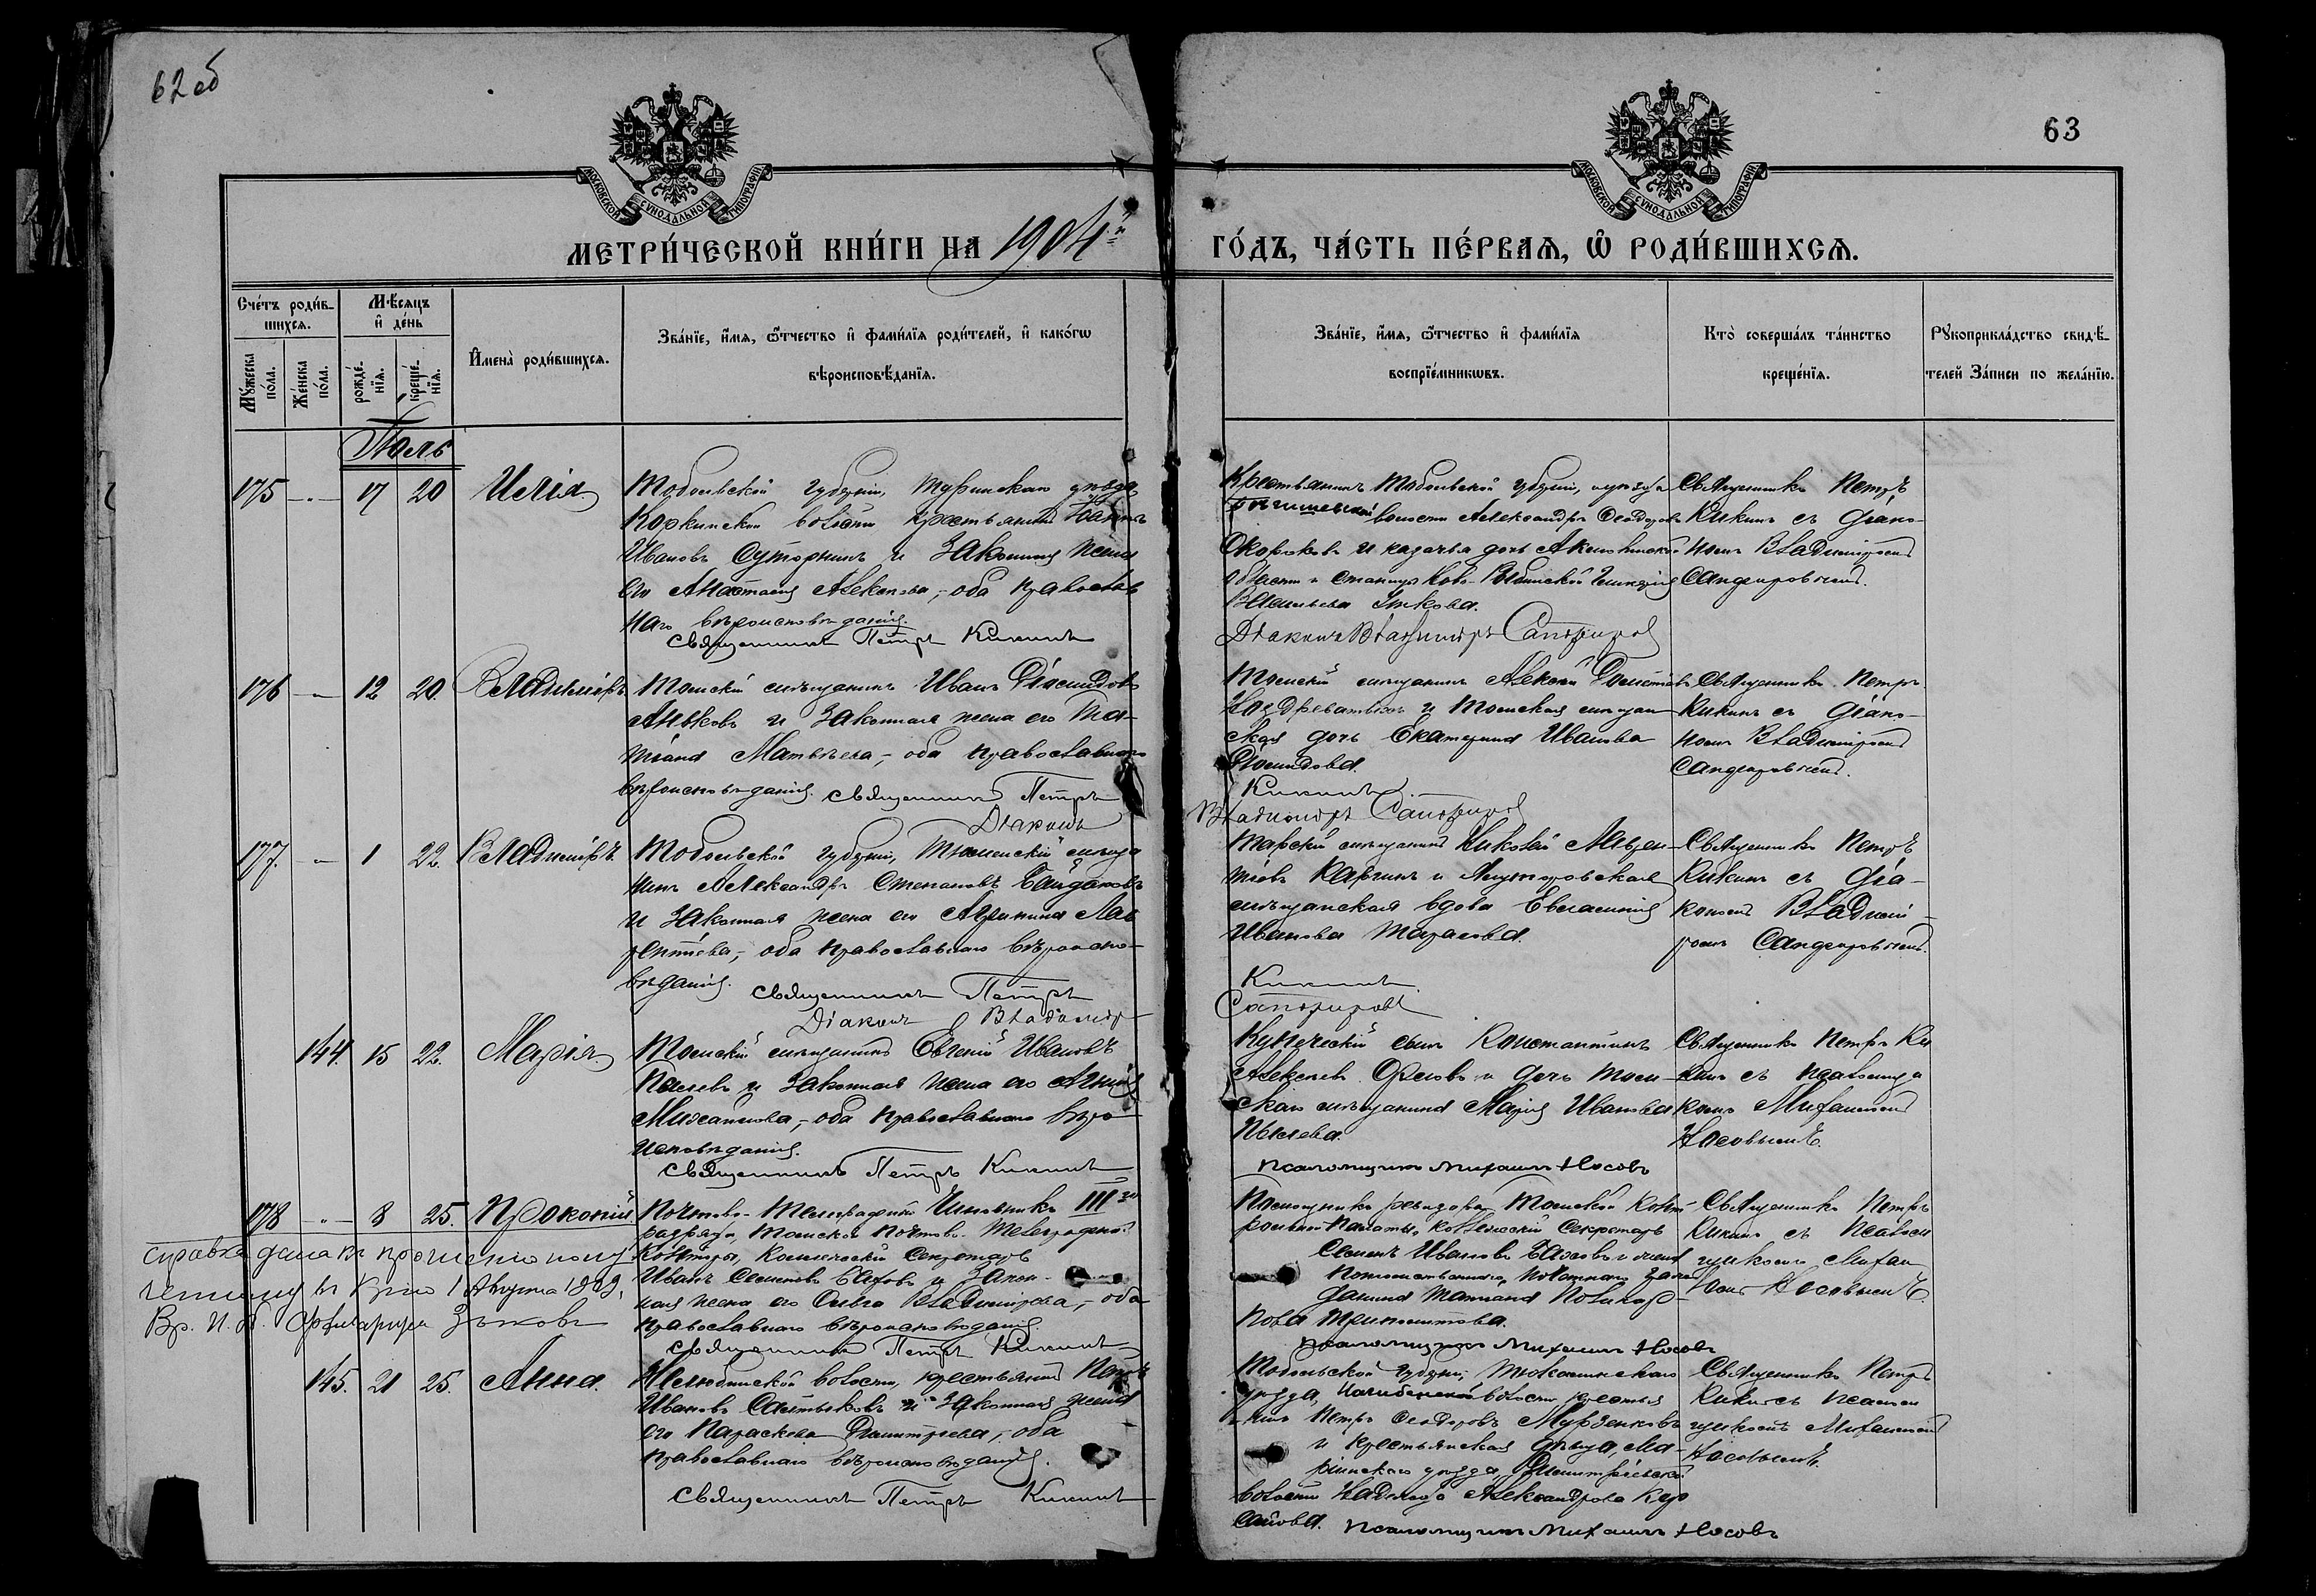 62 об
63
МОСКОВСКОЙ СѴНОДАЛЬНОЙ ТИПОГРАФІИ
МОСКОВСКОЙ СѴНОДАЛЬНОЙ ТИПОГРАФІИ
МЕТРИ́ЧЕСКОЙ КНИ́ГИ НА 1904й
ГО́ДЪ, ЧА́СТЬ ПЕ́РВАѦ, Ѡ҆ РОДИ́ВШИХСѦ.
Сче́тъ роди́в-
шихсѧ.
Мѣ́сѧцъ
и҆ де́нь
Мꙋ́жеска
по́ла.
Же́нска
по́ла.
рожде́-
нїѧ.
креще́-
нїѧ.
И҆мена̀ роди́вшихсѧ.
Зва́нїе, и҆́мѧ, ѻ҆́тчество и҆ фами́лїѧ роди́телей, и҆ како́гѡ
вѣроисповѣ́данїѧ.
Зва́нїе, и҆́мѧ, ѻ҆́тчество и҆ фами́лїѧ
воспрїе́мникѡвъ.
Кто̀ соверша́лъ та́инство
креще́нїѧ.
Рꙋкоприкла́дство свидѣ́-
телей За́писи по жела́нїю.
Іюль
175 — 17 20 Илія
Тобольской губерніи, Туринскаго уѣзда
Коркинской волости крестьянинъ Іоаннъ
Ивановъ Суторминъ и законная жена
его Анастасія Алексѣева, оба православ
наго вѣроисповѣданія.
Священникъ Петръ Кикинъ
Крестьянинъ Тобольской губерніи,
волости Александръ Ѳеодоровъ
Скороковъ и казачья дочь Акмолинской
области
Васильева
Діаконъ Владиміръ Сапфировъ
Священникъ Петръ
Кикинъ съ діако-
номъ Владиміромъ
Сапфировымъ.
176 — 12 20. Владиміръ
Томскій мѣщанинъ Иванъ
и законная жена его Та-
тіана Матвѣева, оба православнаго
вѣроисповѣданія. Священникъ Петръ
Діаконъ
Томскій мѣщанинъ Алексѣй
Ноздреватыхъ и Томская мѣщан
ская дочь Екатерина Иванова
Кикинъ
Владиміръ Сапфировъ
Священникъ Петръ
Кикинъ съ діако-
номъ Владиміромъ
Сапфировымъ.
177. — 1 22. Владиміръ.
Тобольской губерніи, Тюменскій мѣща
нинъ Александръ Степановъ Байдаковъ
и законная жена его Агрипина Лав
рентіева, оба православнаго вѣроиспо-
вѣданія. Священникъ Петръ
Діаконъ Владиміръ
Тарскій мѣщанинъ Николай
Каргинъ и Ялуторовская
мѣщанская вдова Евгенія
Иванова Тарасова.
Кикинъ
Сапфировъ
Священникъ Петръ
Кикинъ съ діа-
кономъ Владимі-
ромъ Сапфировымъ.
144. 15 22. Марія
Томскій мѣщанинъ Евгеній Ивановъ
и законная жена его
Михайлова, оба православнаго вѣро-
исповѣданія.
Священникъ Петръ Кикинъ
Купеческій сынъ Константинъ
Алексѣевъ Орловъ и дочь Том-
скаго мѣщанина Марія Иванова
Псаломщикъ Михаилъ Носовъ
Священникъ Петръ Ки
кинъ съ псаломщи
комъ Михаиломъ
Носовымъ.
178 — 8 25. Прокопій
Почтово-Телеграфный Чиновникъ IIIго
разряда, Томской Почтово-Телеграфной
Конторы, Коллежскій Секретарь
Иванъ Семеновъ и закон-
ная жена его Ольга Владимірова, оба
православнаго вѣроисповѣданія.
Священникъ Петръ Кикинъ
Справка дана къ прошенію
Августа 1909,
Помощникъ ревизора Томской Конт
рольной Палаты, коллежскій Секретарь
Семенъ Ивановъ и жена
Потомственнаго Почетнаго граж
данина Татіана Поликар-
пова
Псаломщикъ Михаилъ Носовъ
Священникъ Петръ
Кикинъ съ псалом
щикомъ Михаи
ломъ Носовымъ.
145. 21 25. Анна.
Нелюбинской волости, крестьянинъ Петръ
Ивановъ Салтыковъ и законная жена
его Параскева Димитріева, оба
православнаго вѣроисповѣданія.
Священникъ Петръ Кикинъ
Тобольской губерніи, Тюкалинскаго
уѣзда, волости крестья
нинъ Петръ Ѳеодоровъ
и крестьянская дѣвица, Ма-
ріинскаго уѣзда, Димитріевской
волости Надежда Александрова
Псаломщикъ Михаилъ Носовъ
Священникъ Петръ
Кикинъ съ псалом
щикомъ Михаиломъ
Носовымъ.